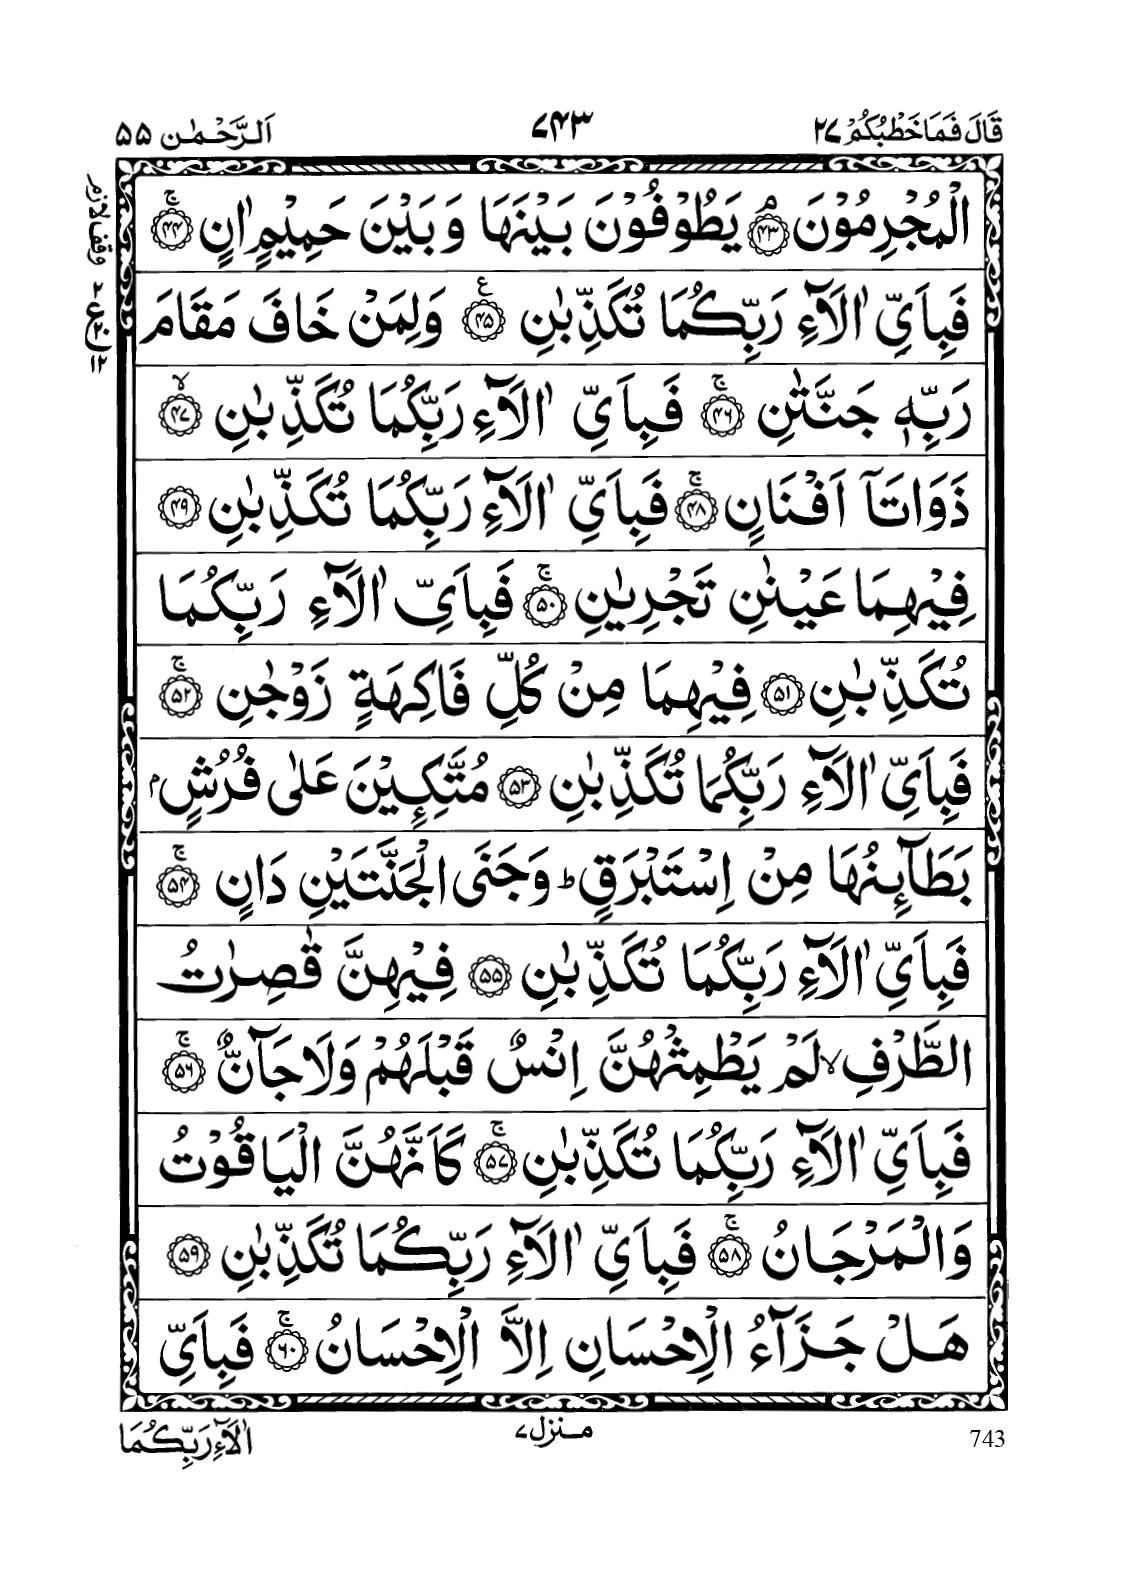 قَالَ فَمَا خَطْبُكُمْ ٢٧
٧٤٣
اَلرَّحْمٰن ٥٥
الْمُجْرِمُوْنَ ۘ ﴿۴۳﴾ يَطُوْفُوْنَ بَيْنَهَا وَ بَيْنَ حَمِيْمٍ اٰنٍ ۚ ﴿۴۴﴾
فَبِاَيِّ اٰلَآءِ رَبِّكُمَا تُكَذِّبٰنِ ﴿۴۵﴾ ع وَلِمَنْ خَافَ مَقَامَ
رَبِّهٖ جَنَّتٰنِ ۚ ﴿۴۶﴾ فَبِاَيِّ اٰلَآءِ رَبِّكُمَا تُكَذِّبٰنِ ۙ ﴿۴۷﴾
ذَوَاتَآ اَفْنَانٍ ۚ ﴿۴۸﴾ فَبِاَيِّ اٰلَآءِ رَبِّكُمَا تُكَذِّبٰنِ ﴿۴۹﴾
فِيْهِمَا عَيْنٰنِ تَجْرِيٰنِ ۚ ﴿۵۰﴾ فَبِاَيِّ اٰلَآءِ رَبِّكُمَا
تُكَذِّبٰنِ ﴿۵۱﴾ فِيْهِمَا مِنْ كُلِّ فَاكِهَةٍ زَوْجٰنِ ۚ ﴿۵۲﴾
فَبِاَيِّ اٰلَآءِ رَبِّكُمَا تُكَذِّبٰنِ ﴿۵۳﴾ مُتَّكِـِٕيْنَ عَلٰى فُرُشٍۭ
بَطَآئِنُهَا مِنْ اِسْتَبْرَقٍ ؕ وَجَنَى الْجَنَّتَيْنِ دَانٍ ۚ ﴿۵۴﴾
فَبِاَيِّ اٰلَآءِ رَبِّكُمَا تُكَذِّبٰنِ ﴿۵۵﴾ فِيْهِنَّ قٰصِرٰتُ
الطَّرْفِ ۙ لَمْ يَطْمِثْهُنَّ اِنْسٌ قَبْلَهُمْ وَلَا جَآنٌّ ۚ ﴿۵۶﴾
فَبِاَيِّ اٰلَآءِ رَبِّكُمَا تُكَذِّبٰنِ ۚ ﴿۵۷﴾ كَاَنَّهُنَّ الْيَاقُوْتُ
وَالْمَرْجَانُ ۚ ﴿۵۸﴾ فَبِاَيِّ اٰلَآءِ رَبِّكُمَا تُكَذِّبٰنِ ﴿۵۹﴾
هَلْ جَزَآءُ الْاِحْسَانِ اِلَّا الْاِحْسَانُ ۚ ﴿۶۰﴾ فَبِاَيِّ
وقف لازم
٢ ع ٢٠ ١٢
743
منزل ٧
اٰلَآءِ رَبِّكُمَا